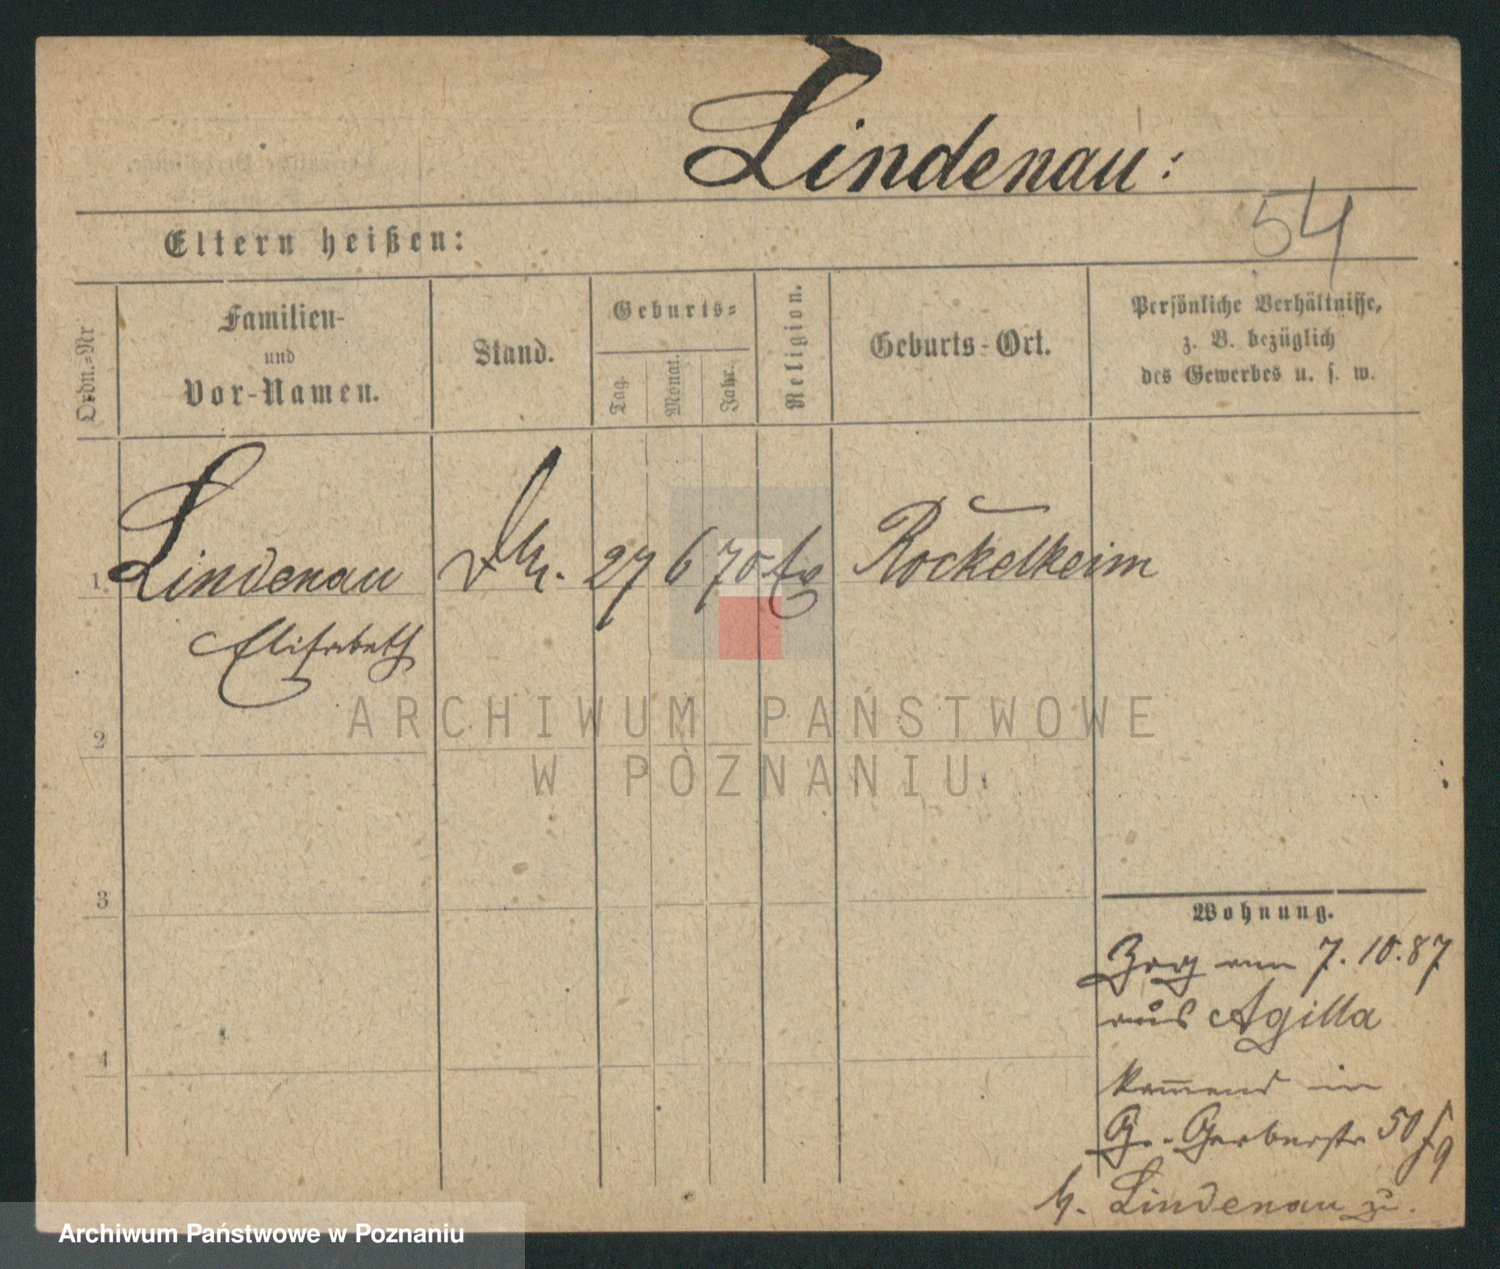 Lindenau:
54
Eltern heißen:
Ordn.-Nr
Familien-
und
Vor-Namen.
Stand.
Geburts-
Tag.
Monat.
Jahr.
Religion.
Geburts-Ort.
Persönliche Verhältnisse,
z. B. bezüglich
des Gewerbes u. s. w.
1 Lindenau 27 6 70 Ev Rockelkeim
Elisabeth
ARCHIWUM PAŃSTWOWE
W POZNANIU
2
3
4
Wohnung.
Zog am 7.10.87
aus Agilla
kommend in
Gr. Gerberstr 50
b. Lindenau zu.
Archiwum Państwowe w Poznaniu